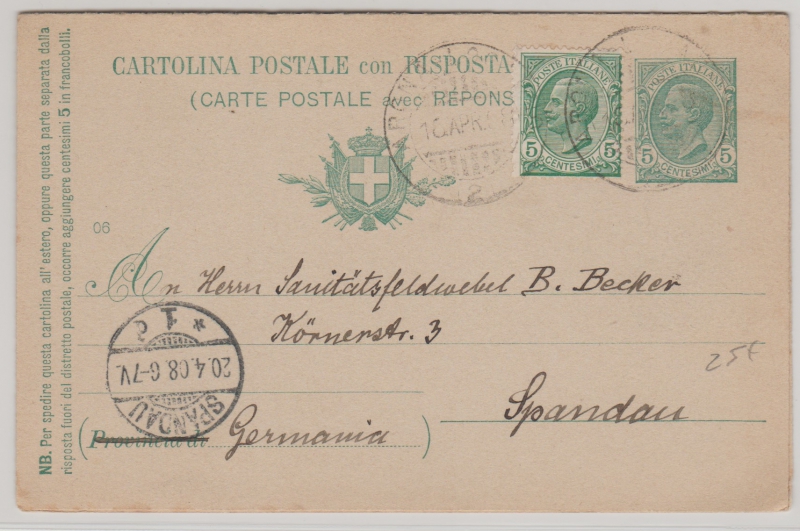 CARTOLINA POSTALE con RISPOSTA
(CARTE POSTALE avec REPONS
POSTE ITALIANE
5 5
CENTESIMI
POSTE ITALIANE
5 5
CENTESIMI
16 APR.
2
06
An Herrn Sanitätsfeldwebel B. Becker
Körnerstr. 3
Spandau
(Provincia di Germania)
* 1 c
20.4.08.6-7V.
SPANDAU
25€
NB. Per spedire questa cartolina all'estero, oppure questa parte separata dalla
risposta fuori del distretto postale, occorre aggiungere centesimi 5 in francobolli.